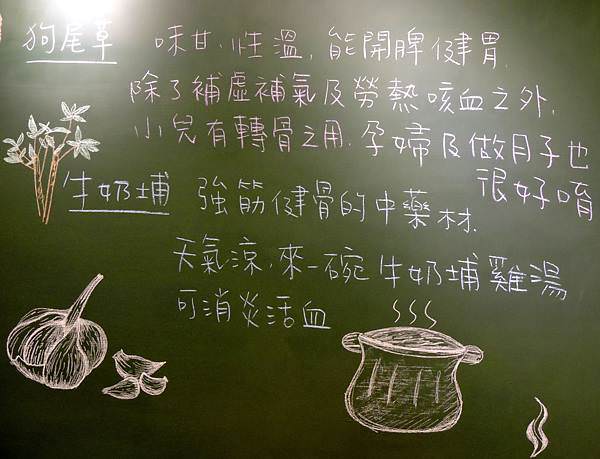 狗尾草 味甘,性溫,能開脾健胃.
除了補虛補氣及勞熱咳血之外,
小兒有轉骨之用.孕婦及做月子也
很好唷
牛奶埔 強筋健骨的中藥材.
天氣涼,來一碗牛奶埔雞湯
可消炎活血